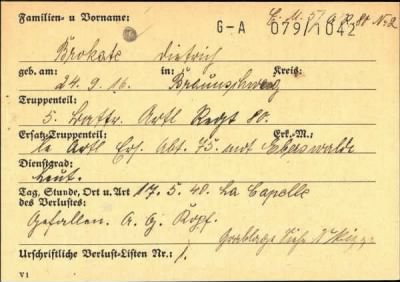 Familien- u Vorname:
G-A 079/1042
Brokate Dietrich
geb. am: in: Kreis:
24. 9. 16. Braunschweig
Truppenteil:
5. Battr. Artl Regt 80.
Ersatz-Truppenteil: Erk.-M.:
le Artl Ers. Abt. 75. Eberswalde
Dienstgrad:
Leut.
Tag, Stunde, Ort u. Art 17. 5. 40. La Capelle
des Verlustes:
Gefallen. A. G. Kopf.
Grablage
Urschriftliche Verlust-Listen Nr.: 1.
V 1